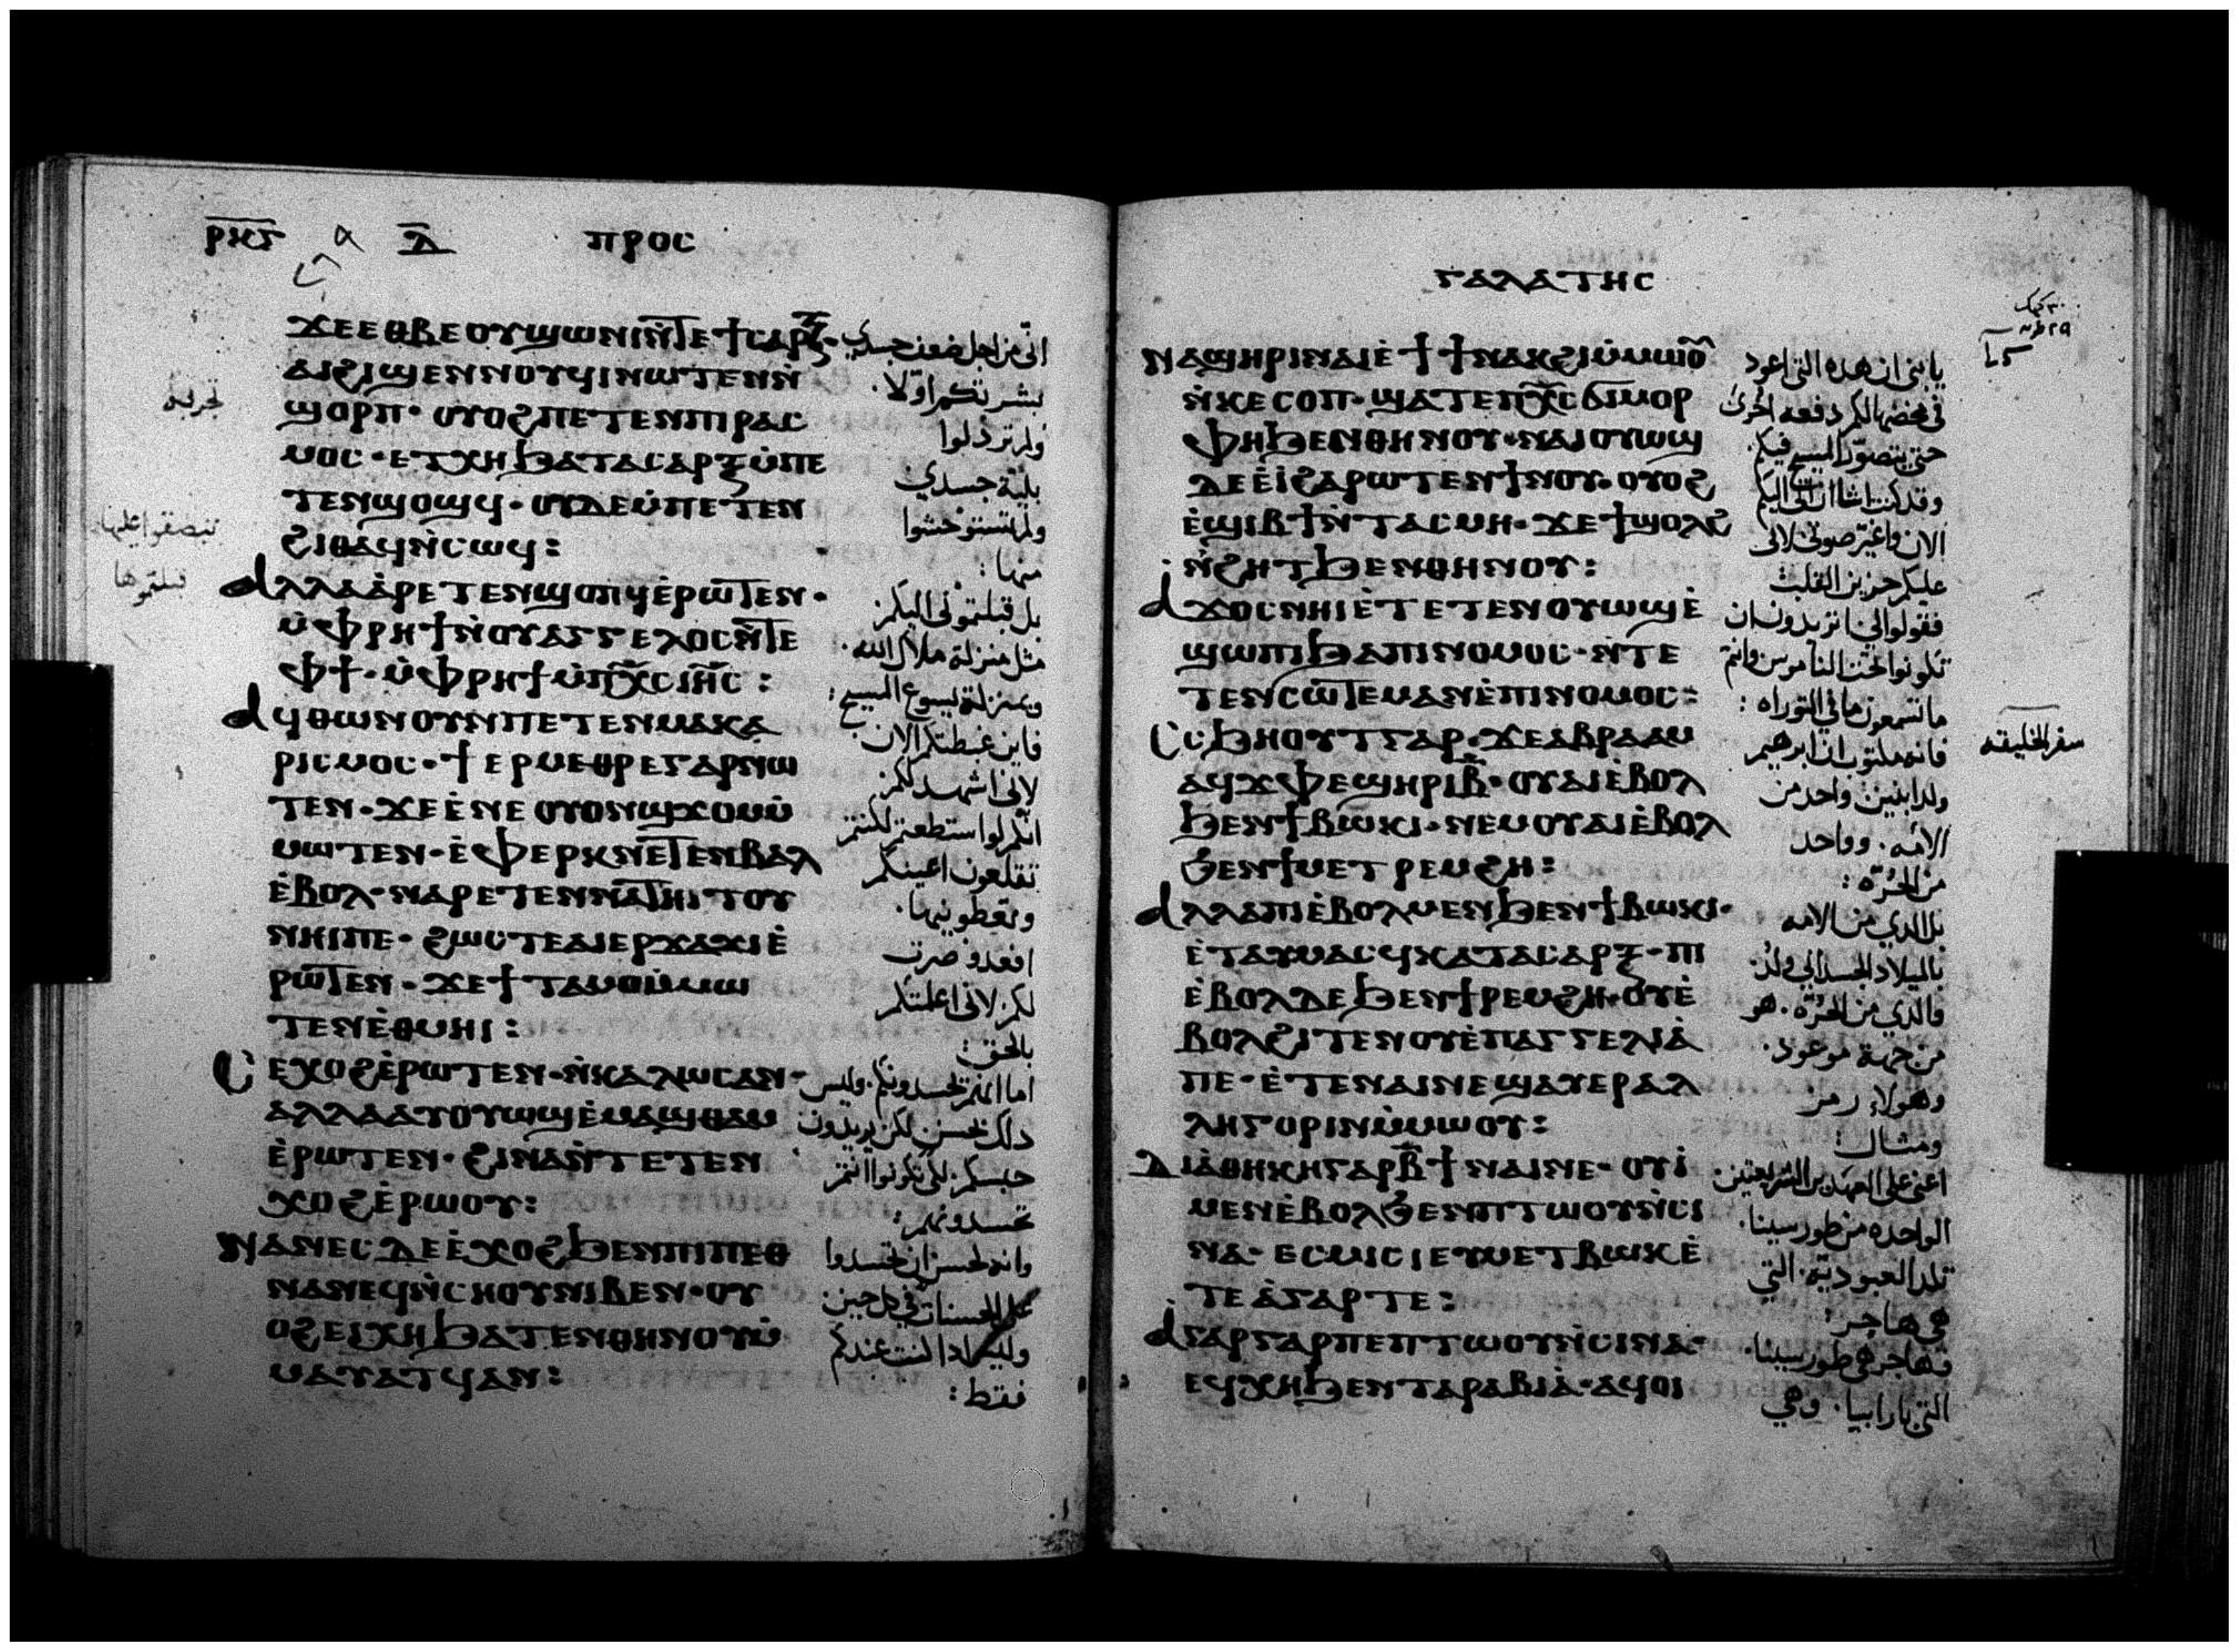 ⲣⲕⲋ ⲇ̅ ⲡⲣⲟⲥ
ϫⲉⲉⲑⲃⲉⲟⲩϣⲱⲛⲓⲛ̅ⲧⲉϯⲥⲁⲣⲝ·
ⲁⲓϩⲓϣⲉⲛⲛⲟⲩϥⲓⲛⲱⲧⲉⲛⲛ̀
ϣⲟⲣⲡ· ⲟⲩⲟϩⲡⲉⲧⲉⲛⲡⲓⲣⲁⲥ
ⲙⲟⲥ· ⲉⲧⲭⲏϧⲁⲧⲁⲥⲁⲣⲝⲙ̀ⲡⲉ
ⲧⲉⲛϣⲟϣϥ· ⲟⲩⲇⲉⲙ̀ⲡⲉⲧⲉⲛ
ϩⲓⲑⲁϥⲛ̀ⲥⲱϥ:
ⲁⲗⲗⲁⲁ̀ⲣⲉⲧⲉⲛϣⲟⲡϥⲉ̀ⲣⲱ̅ⲧⲉⲛ·
ⲙ̀ⲫⲣⲏϯⲛ̀ⲟⲩⲁⲅⲅⲉⲗⲟⲥⲛ̅ⲧⲉ
ⲫϯ· ⲙ̀ⲫⲣⲏϯⲙ̀ⲡⲭ̅ⲥⲓⲏ̅ⲥ:
ⲁϥⲑⲱⲛⲟⲩⲛⲡⲉⲧⲉⲛⲙⲁⲕⲁ
ⲣⲓⲥⲙⲟⲥ· ϯⲉⲣⲙⲉⲑⲣⲉⲅⲁⲣⲛⲱ
ⲧⲉⲛ· ϫⲉⲉ̀ⲛⲉⲟⲩⲟⲛϣϫⲟⲙⲙ̀
ⲙⲱⲧⲉⲛ· ⲉ̀ⲫⲉⲣⲕⲛⲉ̅ⲧⲉⲛⲃⲁⲗ
ⲉ̀ⲃⲟⲗ· ⲛⲁⲣⲉⲧⲉⲛⲛⲁ̅ⲧⲏⲓⲧⲟⲩ
ⲛⲏⲓⲡⲉ· ϩⲱⲥⲧⲉⲁⲓⲉⲣϫⲁϫⲓⲉ̀
ⲣⲱ̅ⲧⲉⲛ· ϫⲉϯⲧⲁⲙⲟⲙ̀ⲙⲱ
ⲧⲉⲛⲉ̀ⲑⲙⲏⲓ:
ⲥⲉⲭⲟϩⲉ̀ⲣⲱⲧⲉⲛ· ⲛ̀ⲕⲁⲗⲱⲥⲁⲛ·
ⲁⲗⲗⲁⲁⲩⲟⲩⲱϣⲉ̀ⲙⲁϣⲑⲁⲙ
ⲉ̀ⲣⲱⲧⲉⲛ· ϩⲓⲛⲁⲛ̀ⲧⲉⲧⲉⲛ
ⲭⲟϩⲉ̀ⲣⲱⲟⲩ:
ⲛⲁⲛⲉⲥⲇⲉⲉ̀ⲭⲟϩϧⲉⲛⲡⲓⲡⲉⲑ
ⲛⲁⲛⲉϥⲛ̀ⲥⲏⲟⲩⲛⲓⲃⲉⲛ· ⲟⲩ
ⲟϩⲉⲓⲭⲏϧⲁⲧⲉⲛⲑⲏⲛⲟⲩⲙ̀
ⲙⲁⲩⲁⲧϥⲁⲛ:
اني من اجل ضعف جسدي
بشرتكم اولا.
ولم ترذلوا
بلية جسدي
ولم تستوحشوا
منها:
بل قبلتموني اليكم
مثل منزلة ملاك الله.
وبمنزلة يسوع المسيح:
فاين غبطتكم الان
لاني اشهد لكم
انكم لو استطعتم لكنتم
تقلعون اعينكم
وتعطونيها.
افعدو صرت
لكم لاني اعلمتكم
بالحق:
اما انهم تحسدونكم. وليس
ذلك بحسن لكن يريدون
حبسكم. لكي تكونوا انتم
تحسدونهم:
وانه لحسن ان تحسدوا
على الحسنات في كل حين.
وليس اذا كنت عندكم
فقط:
تجربة
تبصقوا عليها
قبلتموها
ⲅⲁⲗⲁⲧⲏⲥ
ⲛⲁϣⲏⲣⲓⲛⲁⲓⲉ̀ϯϯⲛⲁⲕϩⲓⲙ̀ⲙⲱⲟ̅
ⲛ̀ⲕⲉⲥⲟⲡ· ϣⲁⲧⲉⲡⲭ̅ⲥϭⲓⲙⲟⲣ
ⲫⲏϧⲉⲛⲑⲏⲛⲟⲩ· ⲛⲁⲓⲟⲩⲱϣ
ⲇⲉⲉ̀ⲓ̀ϩⲁⲣⲱⲧⲉⲛϯⲛⲟⲩ· ⲟⲩⲟϩ
ⲉ̀ϣⲓⲃϯⲛ̀ⲧⲁⲥⲙⲏ· ϫⲉϯϣⲟⲗϩ
ⲛ̀ϩⲏⲧϧⲉⲛⲑⲏⲛⲟⲩ:
ⲁϫⲟⲥⲛⲏⲓⲉ̀ⲧⲉⲧⲉⲛⲟⲩⲱϣⲉ̀
ϣⲱⲡⲓϧⲁⲡⲓⲛⲟⲙⲟⲥ· ⲛ̀ⲧⲉ
ⲧⲉⲛⲥⲱ̅ⲧⲉⲙⲁⲛⲉ̀ⲡⲓⲛⲟⲙⲟⲥ:
ⲥⲥϧⲏⲟⲩⲧⲅⲁⲣ· ϫⲉⲁⲃⲣⲁⲁⲙ
ⲁϥϫⲫⲉϣⲏⲣⲓⲃ̅· ⲟⲩⲁⲓⲉ̀ⲃⲟⲗ
ϧⲉⲛϯⲃⲱⲕⲓ· ⲛⲉⲙⲟⲩⲁⲓⲉ̀ⲃⲟⲗ
ϧⲉⲛϯⲙⲉⲧⲣⲉⲙϩⲏ:
ⲁⲗⲗⲁⲡⲓⲉ̀ⲃⲟⲗⲙⲉⲛϧⲉⲛϯⲃⲱⲕⲓ·
ⲉ̀ⲧⲁⲩⲙⲁⲥϥⲕⲁⲧⲁⲥⲁⲣⲝ· ⲡⲓ
ⲉ̀ⲃⲟⲗⲇⲉϧⲉⲛϯⲣⲉⲙϩⲏ· ⲟⲩⲉ̀
ⲃⲟⲗϩⲓⲧⲉⲛⲟⲩⲉ̀ⲡⲁⲅⲅⲉⲗⲓⲁ̀
ⲡⲉ· ⲉ̀ⲧⲉⲛⲁⲓⲛⲉϣⲁⲩⲉⲣⲁⲗ
ⲗⲏⲅⲟⲣⲓⲛⲙ̀ⲙⲱⲟⲩ:
ⲇⲓⲁ̀ⲑⲏⲕⲏⲅⲁⲣⲃ̅ϯⲛⲁⲓⲛⲉ· ⲟⲩⲓ̀
ⲙⲉⲛⲉ̀ⲃⲟⲗϧⲉⲛⲡⲧⲱⲟⲩⲛ̀ⲥⲓ
ⲛⲁ· ⲉⲥⲙⲓⲥⲓⲉⲩⲙⲉⲧⲃⲱⲕⲉ̀
ⲧⲉⲁ̀ⲅⲁⲣⲧⲉ:
ⲁⲅⲁⲣⲅⲁⲣⲡⲉⲡⲧⲱⲟⲩⲛ̀ⲥⲓⲛⲁ·
ⲉϥⲭⲏϧⲉⲛⲧⲁⲣⲁⲃⲓⲁ̀· ⲁϥⲟⲓ
يا بني ان هذه التي اعود
في مخضها لكم دفعه اخرى
حتى يتصور المسيح فيكم.
الان واغير صوتي لاني
عليكم حزين القلب:
فقولوا لي يا تريدون ان
تكونوا تحت الناموس وانتم
ما تسمعون ما في التوراه:
فانه مكتوب ان ابرهيم
ولد ابنين واحد من
الامه. وواحد
من الحرّه:
بل الذي من الامه
بالميلاد الجسداني ولد.
فالذي من الحرّه. هو
من جهة موعود.
وهولاء رمز
ومثال:
اعني على العهدين الشريعتين
الواحده من طور سينا.
تلد العبودية. التي
هي هاجر:
فهاجر هي طور سينا.
التي بارابيا. وهي
سفر الخليقه